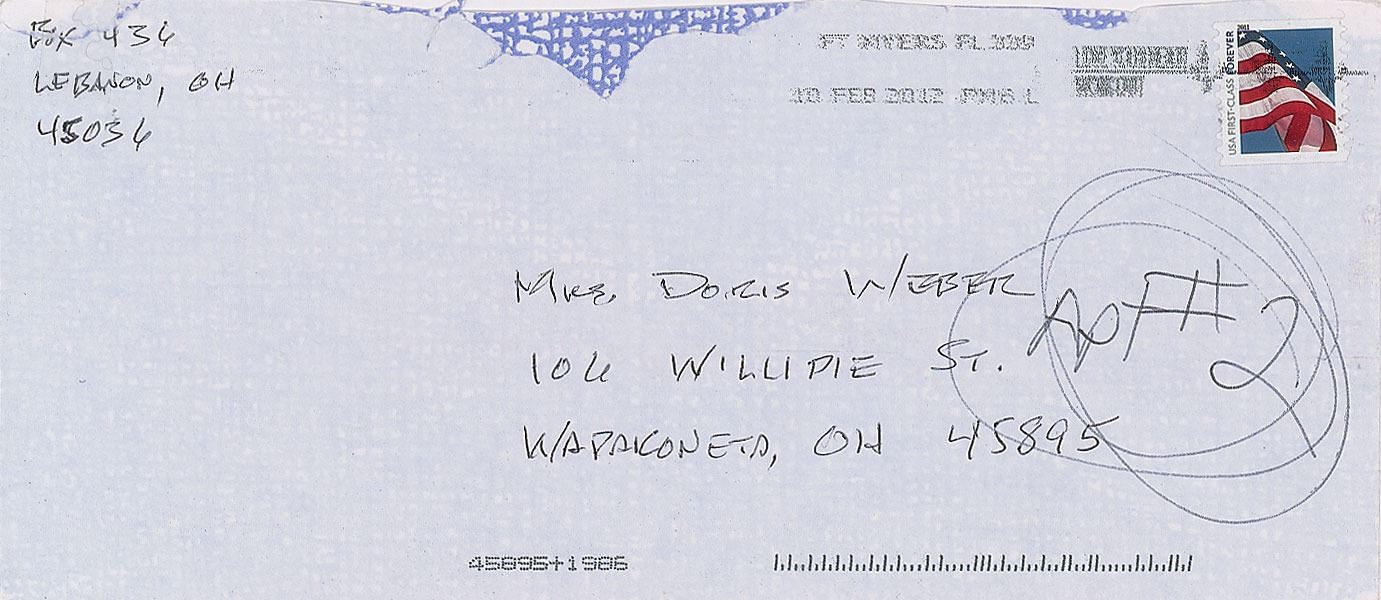 Box 436
LEBANON, OH
45036
FT MYERS FL 339
10 FEB 2012 PM 6 L
USA FIRST-CLASS FOREVER
MRS. DORIS WEBER
106 WILLIPIE ST.
Apt #2
WAPAKONETA, OH 45895
45895+1986